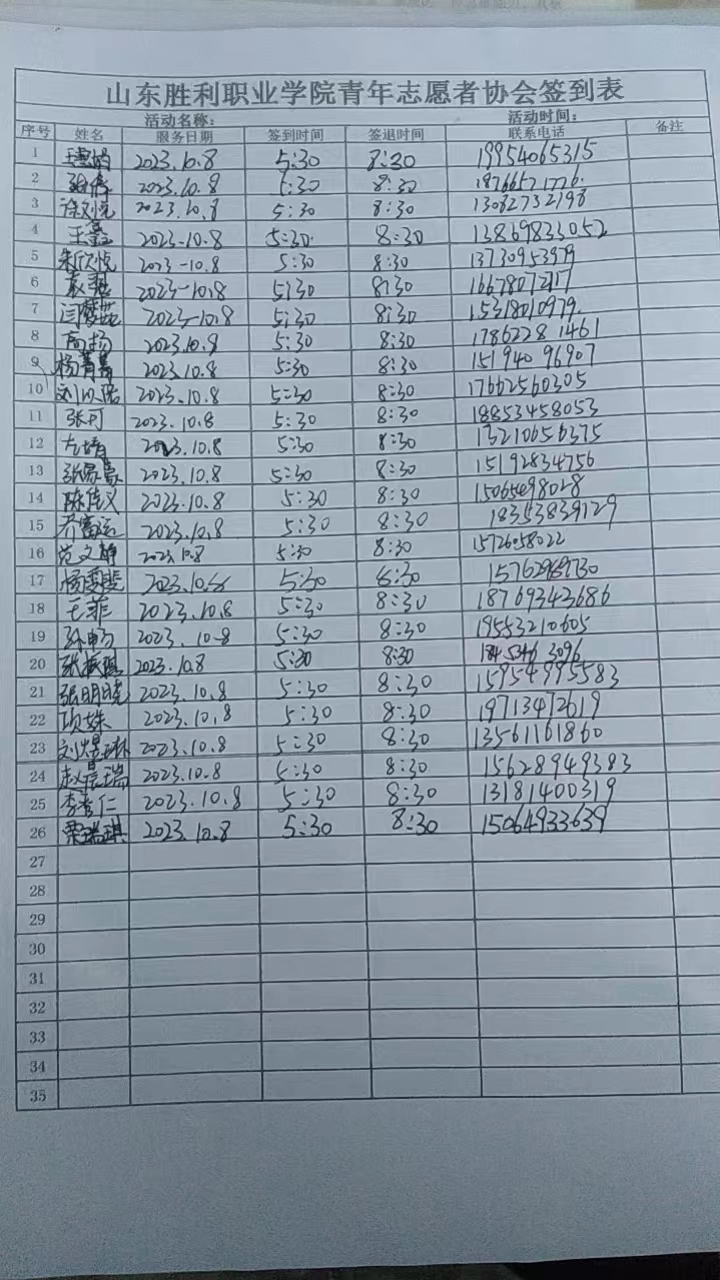 山东胜利职业学院青年志愿者协会签到表
活动名称： 活动时间：
序号 姓名 服务日期 签到时间 签退时间 联系电话 备注
1 2023.10.8 5:30 8:30 19954065315
2 2023.10.8 5:30 8:30
3 徐文悦 2023.10.8 5:30 8:30 13082732198
4 王鑫 2023-10.8 5:30 8:30 13869833052
5 朱欣悦 2023-10.8 5:30 8:30 13730953979
6 2023-10.8 5:30 8:30
7 2023-10.8 5:30 8:30 15318010979
8 2023.10.8 5:30 8:30 17862281461
9 杨菁菁 2023.10.8 5:30 8:30 15194096907
10 2023.10.8 5:30 8:30 17662560305
11 张可 2023.10.8 5:30 8:30 18853458053
12 2023.10.8 5:30 8:30 13210656375
13 2023.10.8 5:30 8:30 15192834756
14 陈传义 2023.10.8 5:30 8:30 15065498028
15 乔富运 2023.10.8 5:30 8:30 18353839129
16 范文静 2023.10.8 5:30 8:30
17 杨雯斐 5:30 8:30
18 王菲 2023.10.8 5:30 8:30 18769343686
19 孙畅 2023.10-8 5:30 8:30 19553210605
20 2023.10.8 5:30 8:30
21 张明晓 2023.10.8 5:30 8:30 15954995583
22 项姝 2023.10.8 5:30 8:30 19713472619
23 刘煜琳 2023.10.8 5:30 8:30 13561161860
24 赵晨瑞 2023.10.8 5:30 8:30 15628949383
25 2023.10.8 5:30 8:30 13181400319
26 荣瑞琪 2023.10.8 5:30 8:30 15064933639
27
28
29
30
31
32
33
34
35